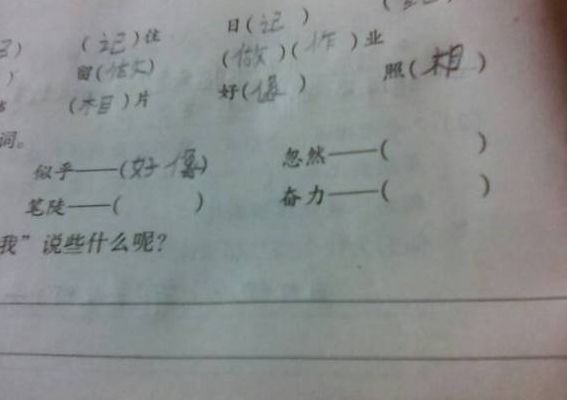 (记)住 日(记)
留(做) (做)(作)业 照(相)
(相)片 好(像)
词。
似乎——(好像) 忽然——( )
笔陡——( ) 奋力——( )
我”说些什么呢?